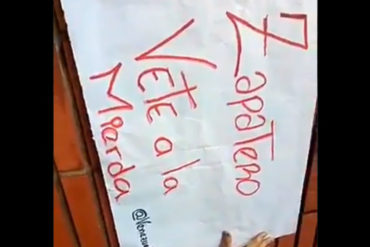 Zapatero
Vete a la
Mierda